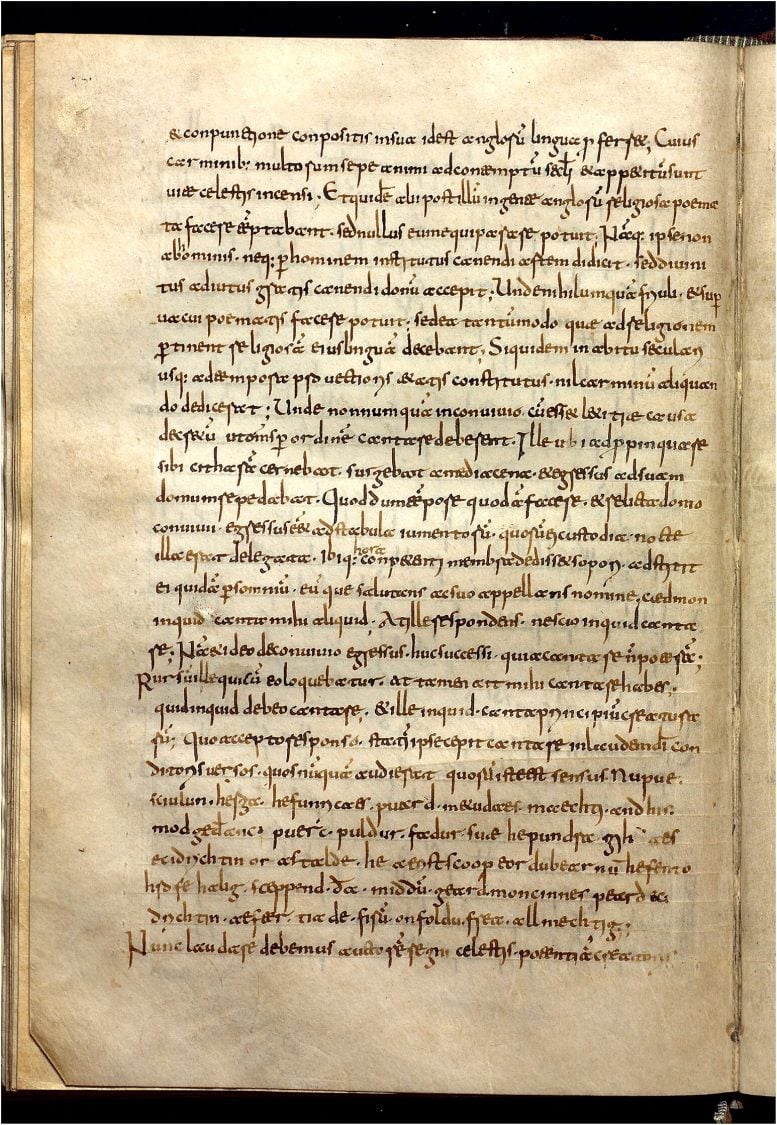 & conpunctione conpositis in sua id est anglorū lingua proferret; Cuius
carminib; multorum sepe animi ad contemptū secłi & appetitū sunt
uitae celestis incensi; Et quidē alii post illū in gente anglorū religiosa poema
ta facere tēptabant · sed nullus eum equiparare potuit; Nāq; ipse non
ab hominis · neq; ꝑ hominem institutus canendi artem didicit · sed diuini
tus adiutus gratis canendi donū accepit; Unde nihil umquā friuoli · & sup
uacui poematis facere potuit; sed ea tantūmodo quae ad religionem
ꝑtinent religiosā eius linguā decebant; Siquidem in abitu seculari
usq; ad tempora prouectioris etatis constitutus · nil carminū aliquan
do dedicerat; Unde nonnumquā in conuiuio cū esset letitiae causa
decretū ut oms ꝑ ordinē cantare deberent · Ille ubi adppinquare
sibi citharā cernebat · surgebat a media cena · & egressus ad suam
domum repedabat · Quod dum tēpore quodā faceret · & relicta domo
conuiui · egressus ēēt ad stabula iumentorū · quorū ei custodia nocte
illa erat delegata · Ibiq; hora conpetenti membra dedisset sopori · adstitit
ei quidā ꝑ somniū · eūque salutans ac suo appellans nomine; caedmon
inquid canta mihi aliquid · At ille respondens · nescio inquid canta
re; Nā & ideo de conuiuio egressus · huc successi · quia cantare n̄ poterā;
Rursū ille qui cū eo loquebatur · at tamen ait mihi cantare habes;
quid inquid debeo cantare · & ille inquid · canta principiū creatura
rū; Quo accepto responso · statī ipse cepit cantare in laudem dī con
ditoris uersos · quos nūquā audierat quorū iste est sensus. Nu pue
sciulun · herga · hefunricaes · puard · metudaes · maechti · and his
modgedanc · puerc · puldur · fadur · sue he pundra · gihuaes
eci drychtin or astalde · he aerist scoop eor dubearnū hefen to
hrofe halig · sceppend · da middū · geard moncinnes peard eci
drychtin · aefter · tia de · firū · on foldu · frea · allmechtig;
Nunc laudare debemus auctorē regni celestis · potentiā creatoris